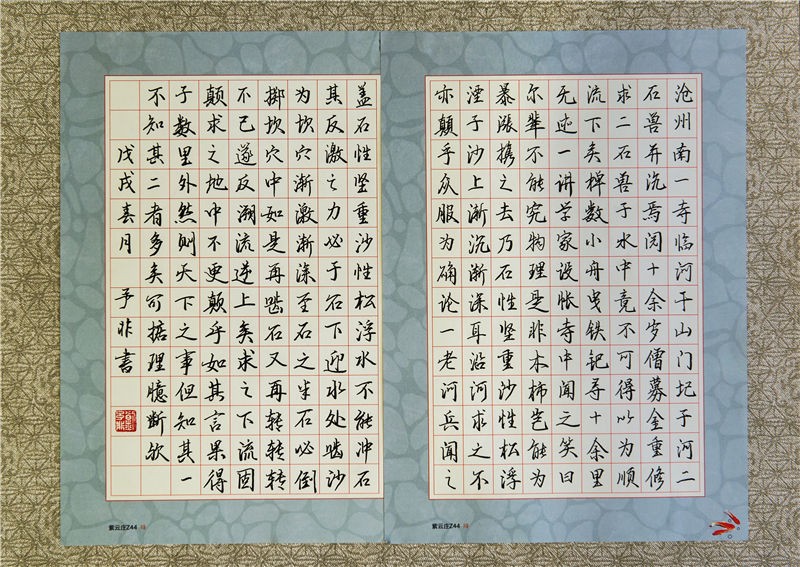 沧州南一寺临河干山门圮于河二
石兽并沉焉阅十余岁僧募金重修
求二石兽于水中竟不可得以为顺
流下矣棹数小舟曳铁钯寻十余里
无迹一讲学家设帐寺中闻之笑曰
尔辈不能究物理是非木杮岂能为
暴涨携之去乃石性坚重沙性松浮
湮于沙上渐沉渐深耳沿河求之不
亦颠乎众服为确论一老河兵闻之
盖石性坚重沙性松浮水不能冲石
其反激之力必于石下迎水处啮沙
为坎穴渐激渐深至石之半石必倒
掷坎穴中如是再啮石又再转转转
不已遂反溯流逆上矣求之下流固
颠求之地中不更颠乎如其言果得
于数里外然则天下之事但知其一
不知其二者多矣可据理臆断欤
戊戌喜月 予非書
紫云庄Z44
紫云庄Z44